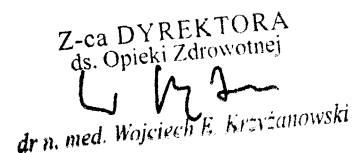 Z-ca DYREKTORA
ds. Opieki Zdrowotnej
dr n. med. Wojciech E. Krzyżanowski